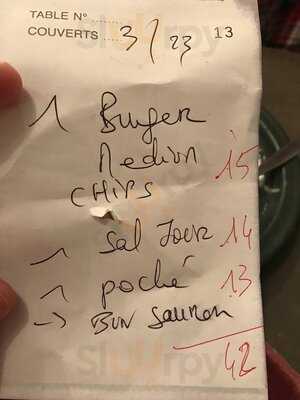 TABLE N°
COUVERTS 3 / 23 13
1 Burger
Medium 15
CHIPS
1 Sal Jour 14
1 poché 13
-> BUN Saumon
42